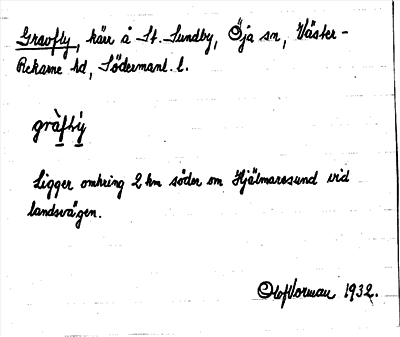 Gravfly, kärr å St. Sundby, Öja sn, Väster-
Rekarne hd, Södermanl. l.
gràfflý
Ligger omkring 2 km söder om Hjälmaresund vid
landsvägen.
Olof Norman 1932.